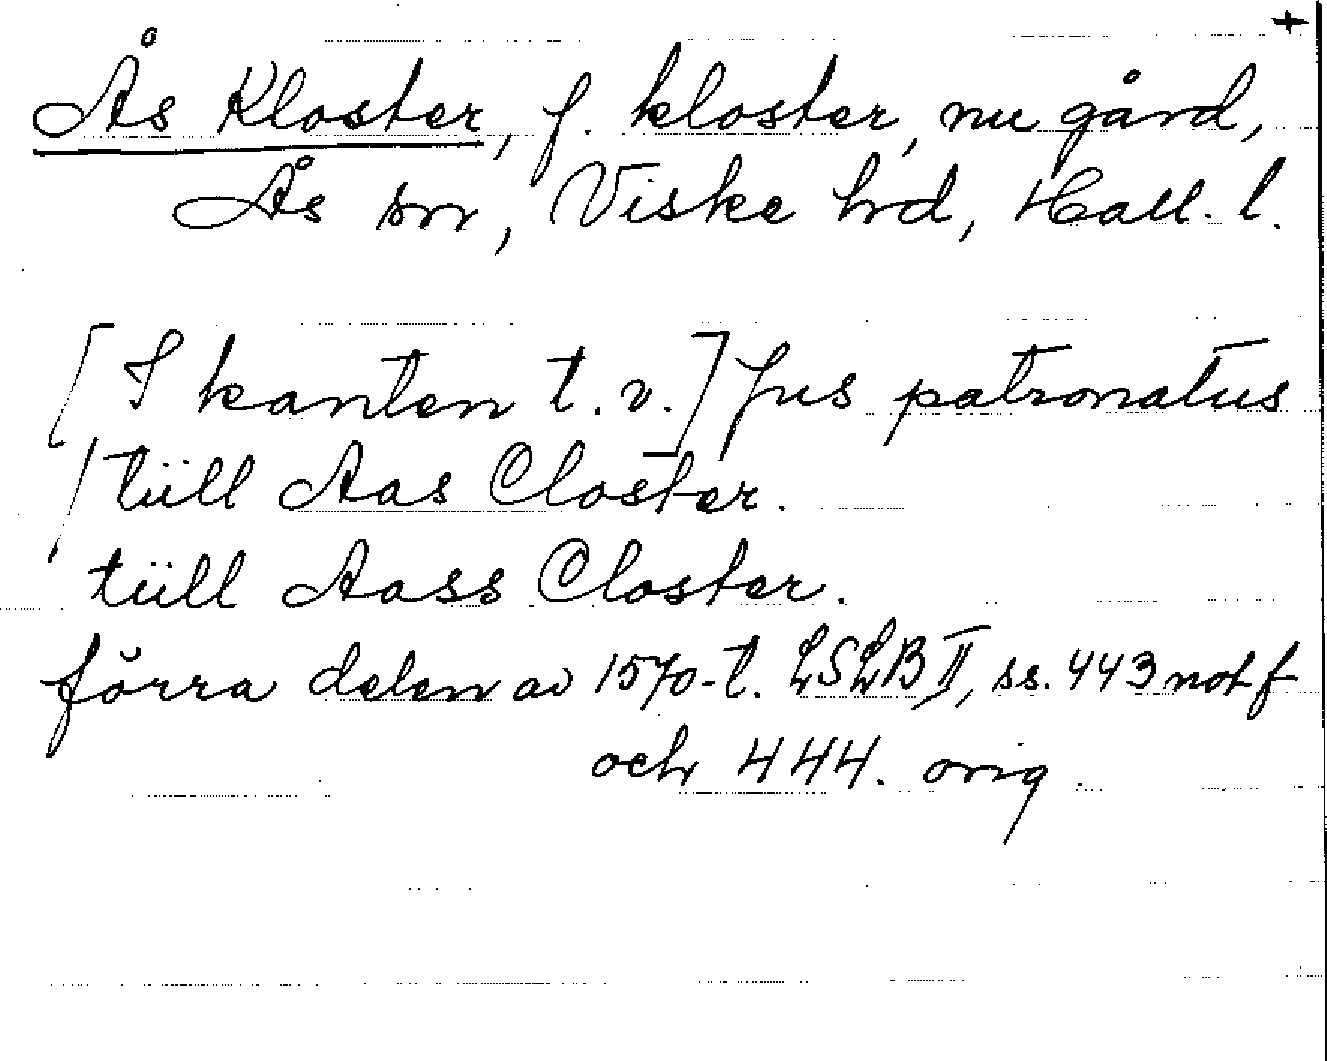 +
Ås Kloster, f. kloster, nu gård,
Ås sn, Viske hrd, Hall. l.
[I kanten t. v.] Jus patronatus
/ tüll Aas Closter.
tüll Aass Closter.
förra delen av 1570-t. LSLB II, ss. 443 not f
och 444. orig.